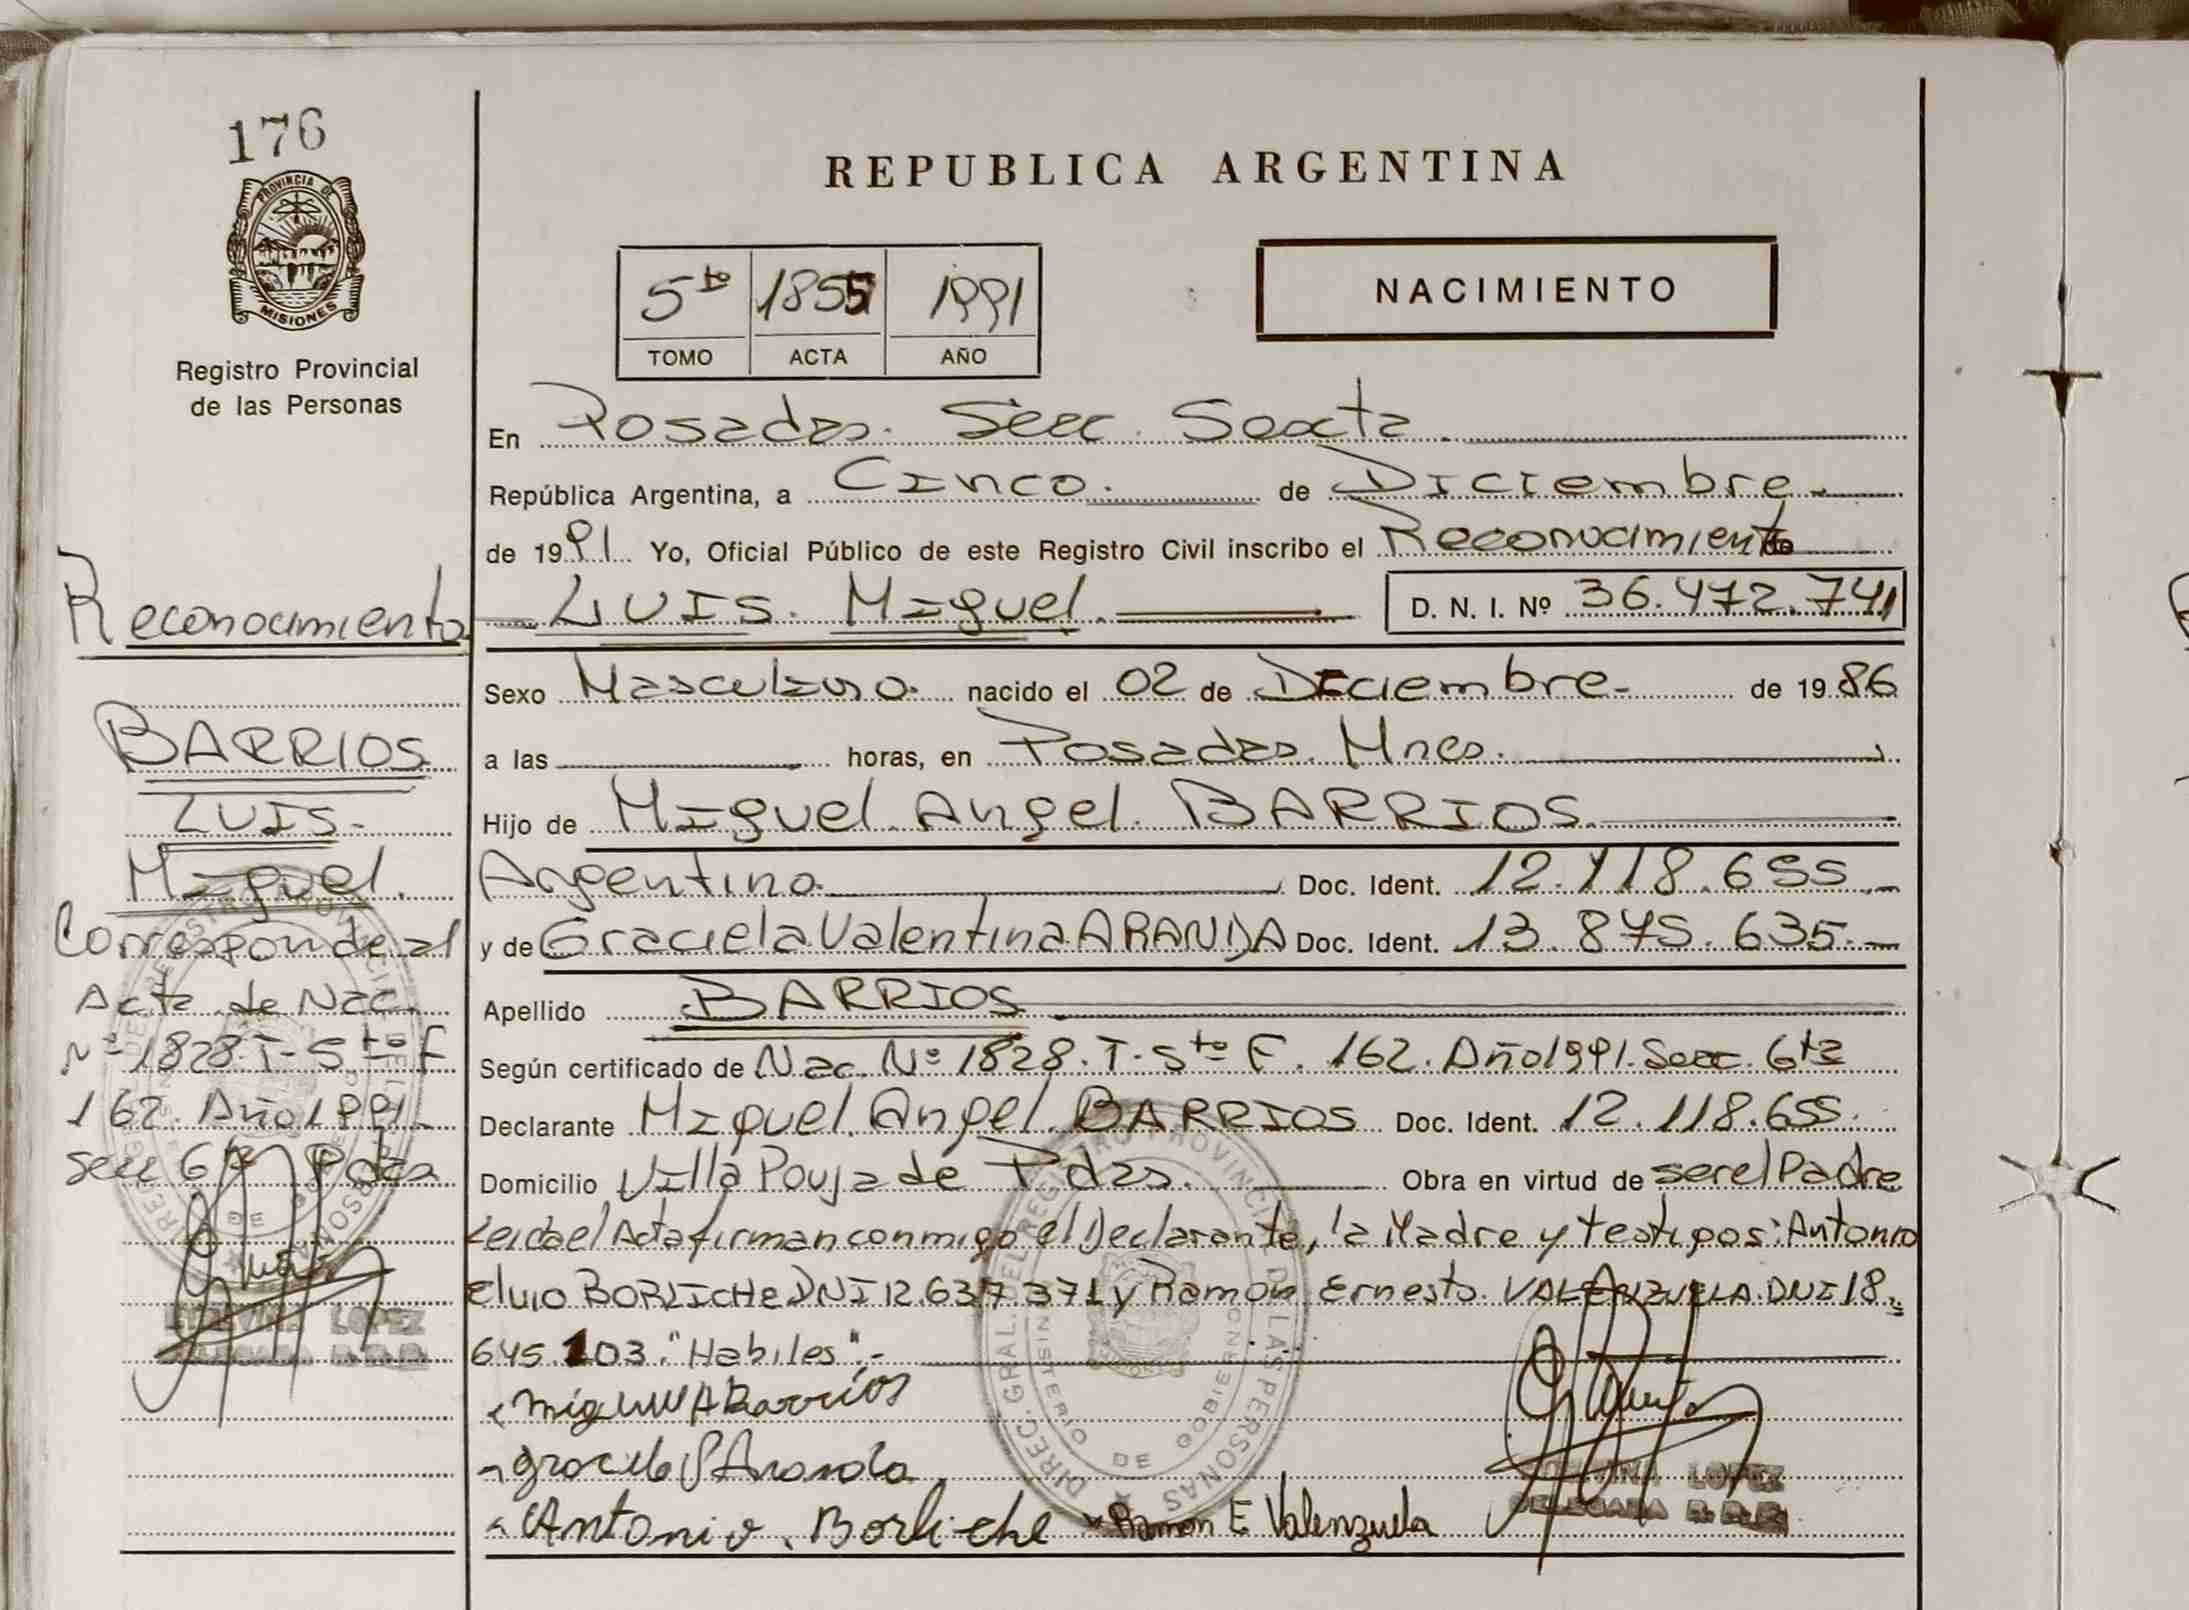 176
PROVINCIA DE
MISIONES
Registro Provincial
de las Personas
Reconocimiento
BARRIOS
LUIS.
Miguel.
Corresponde al
Acta de Nac.
Nº 1828. T- 5to F
162. Año 1991.
secc 6ta Pdas
LOPEZ
DELEGADA R.P.P.
REPUBLICA ARGENTINA
5to 1855 1991
TOMO ACTA AÑO
NACIMIENTO
En Posadas. Secc. Sexta.
República Argentina, a Cinco. de Diciembre.
de 1991. Yo, Oficial Público de este Registro Civil inscribo el Reconocimiento de
LUIS. Miguel. D. N. I. Nº 36.472.741
Sexo Masculino. nacido el 02 de Diciembre. de 1986
a las horas, en Posadas. Mnes.
Hijo de Miguel Angel. BARRIOS.
Argentino. Doc. Ident. 12.118.655.
y de Graciela Valentina ARANDA Doc. Ident. 13.875.635.
Apellido BARRIOS
Según certificado de Nac. Nº 1828. T- 5to F. 162. Año 1991. Secc. 6ta
Declarante Miguel. Angel. BARRIOS Doc. Ident. 12.118.655.
Domicilio Villa Pouja de Pdas. Obra en virtud de ser el Padre
Leida el Acta firman conmigo el Declarante, la Madre y testigos: Antonio
Elvio BORLICHE DNI 12.637.371 y Ramon Ernesto VALENZUELA. DNI 18.
645.103. "Habiles".-
Miguel A Barrios
Antonio. Borliche Ramon E Valenzuela
LOPEZ
DELEGADA R.P.P.
DIREC. GRAL. DEL REGISTRO PROVINCIAL DE LAS PERSONAS
MINISTERIO DE GOBIERNO